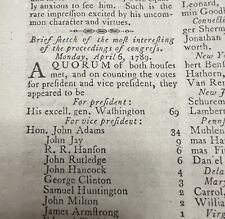 ly anxious to see him. Such is the
rare impression excited by his uncom-
mon character and virtues.
Brief sketch of the most interesting
of the proceedings of congress.
Monday, April 6, 1789.
A QUORUM of both houses
met, and on counting the votes
for president and vice president,
they appeared to be
For president:
His excell. gen. Washington 69
For vice president:
Hon. John Adams 34
John Jay 9
R. R. Hanson 6
John Rutledge 6
John Hancock 4
George Clinton 3
Samuel Huntington 2
John Milton 2
James Armstrong
Leonard,
Goodh
Connecti
ger Sherm
Jonathan
worth.
New
bert Bent
Hathorn,
Van Ren
New J
Schurem
Penns
Muhlen
mas H
Fitzsi
Dan'el
Dela
Mar
Carrol
Wil
Virg